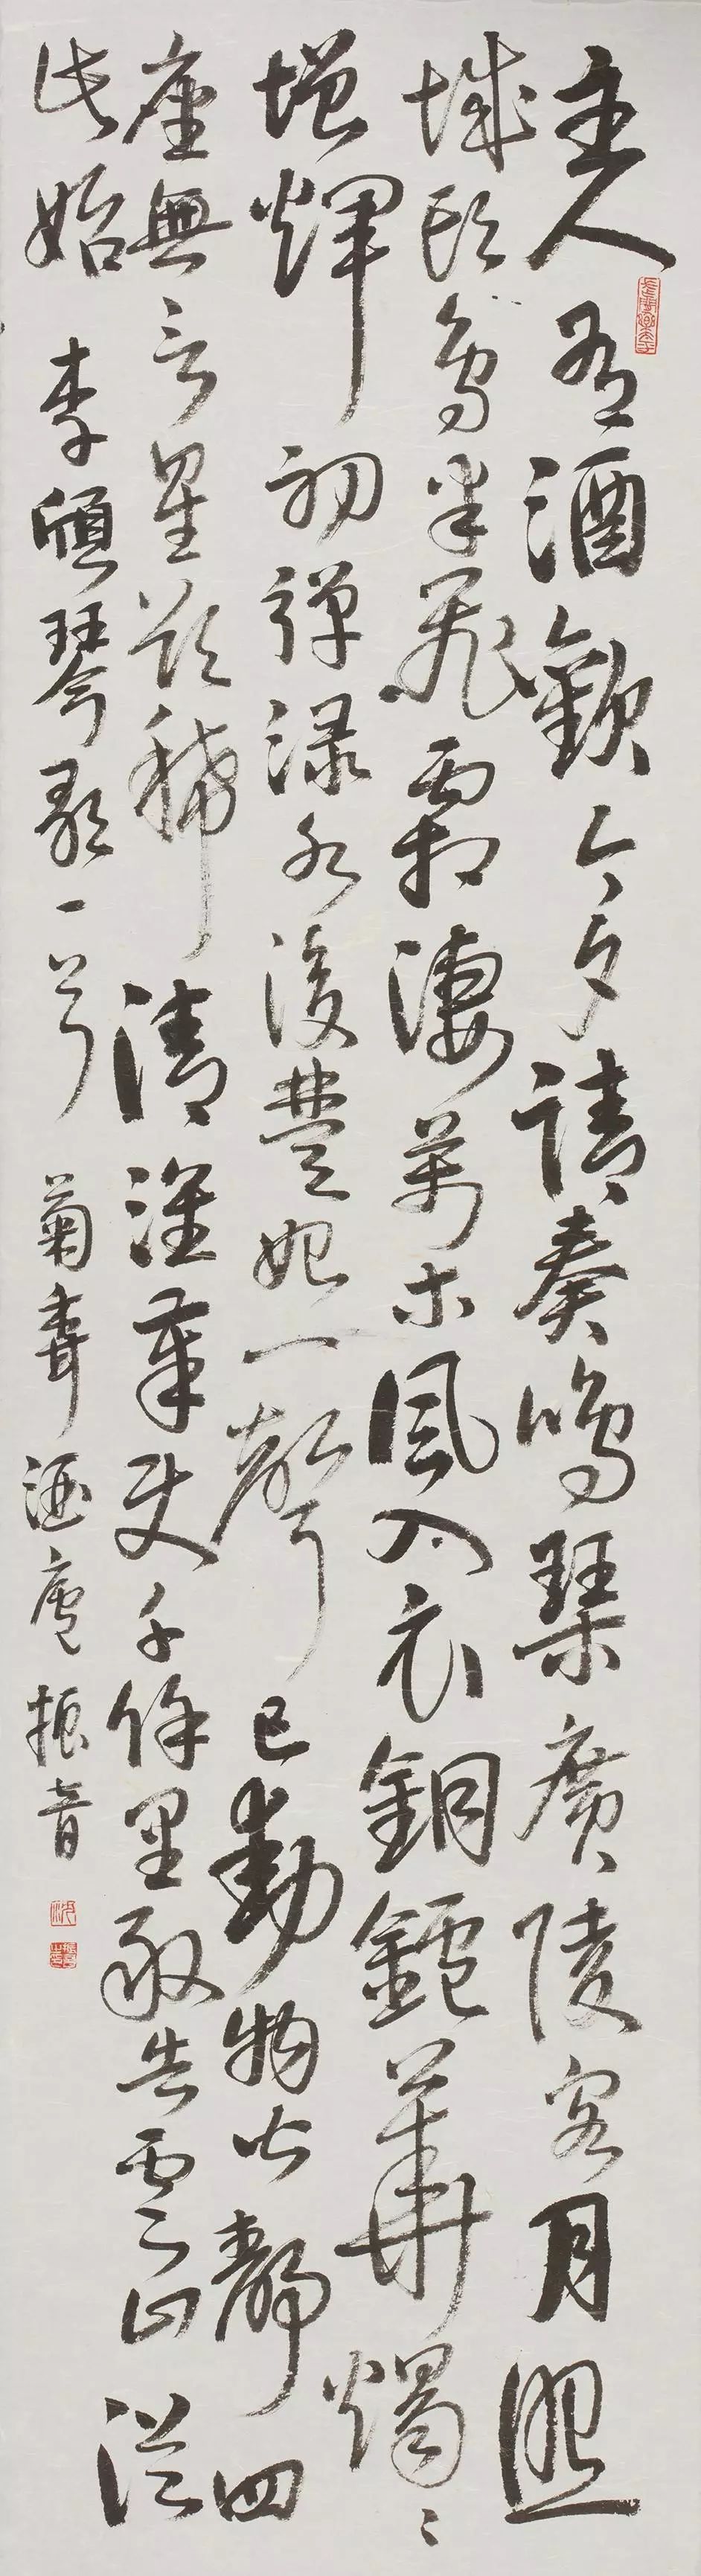 主人有酒歡今夕請奏鳴琴廣陵客月照
城頭烏半飛霜淒萬木風入衣銅鑪華燭〻
增輝初彈淥水後楚妃一聲已動物皆靜四
座無言星欲稀清淮奉使千餘里敢告雲山從
此始 李頎琴歌一首 菊齋酒廬振音